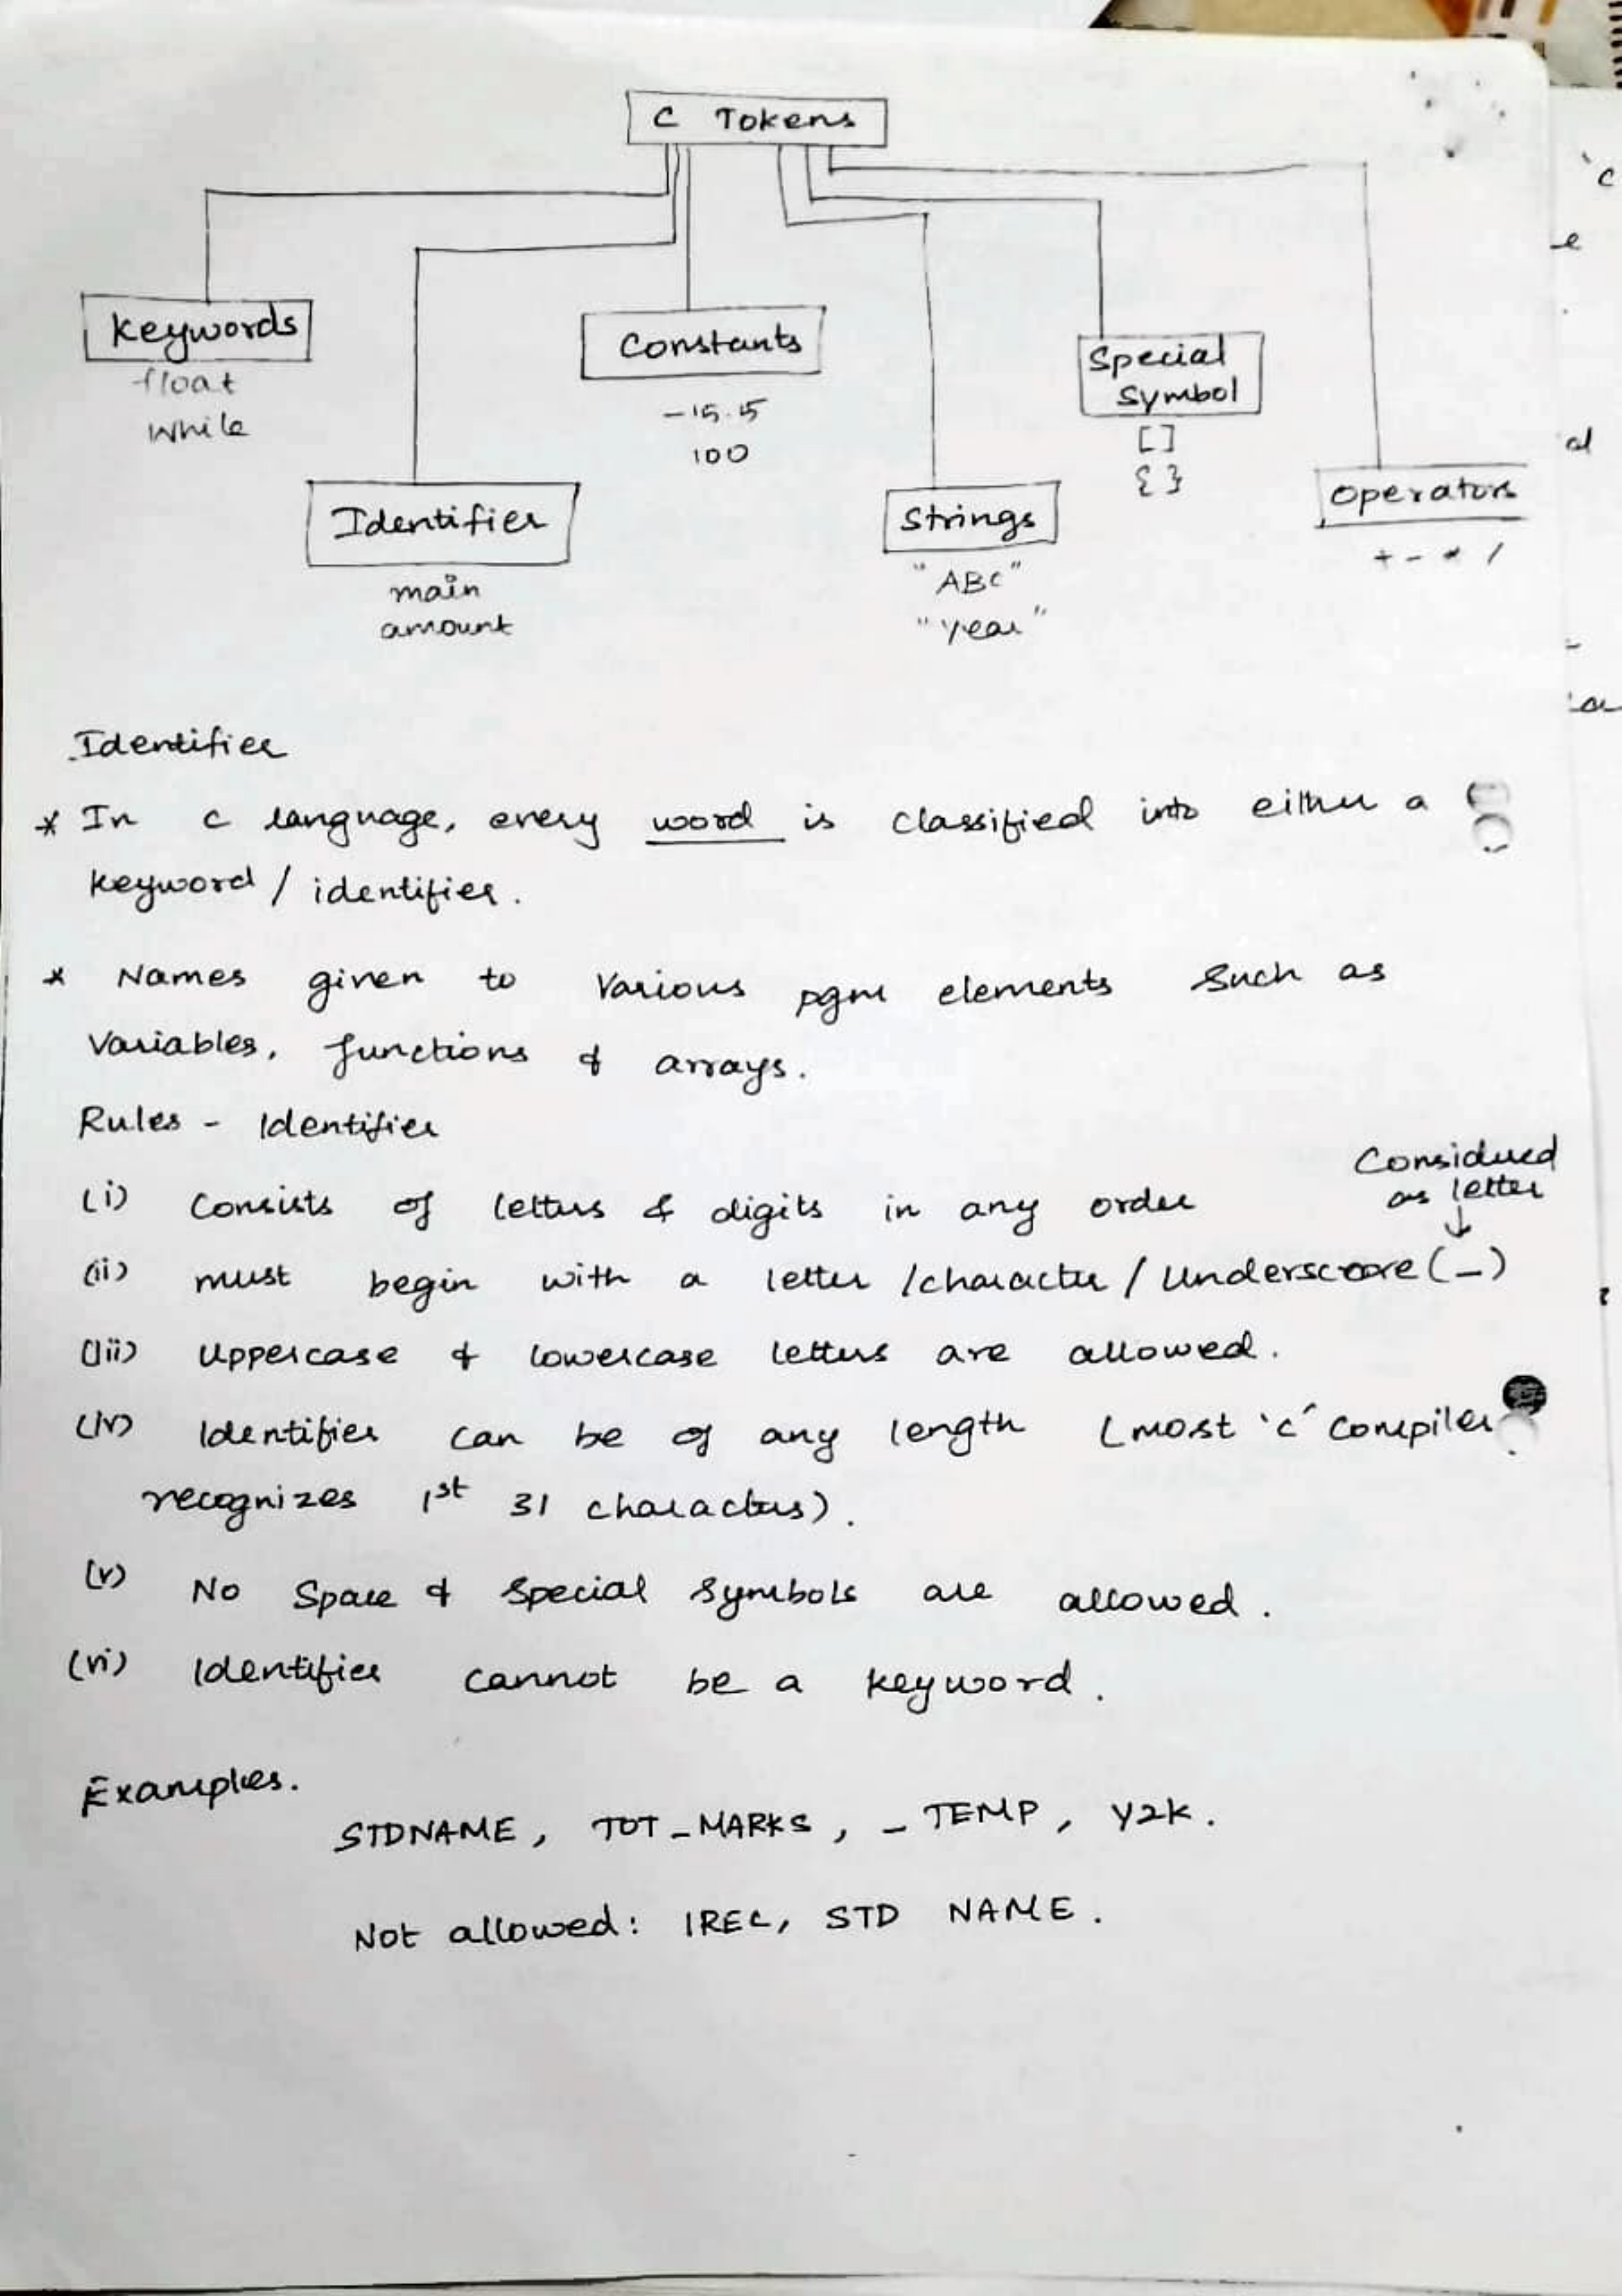 C Tokens
Keywords
float
while
Constants
-15.5
100
Special
Symbol
[ ]
{ }
Operators
+ - * /
Identifier
main
amount
Strings
"ABC"
"year"
Identifier
* In C language, every word is classified into either a
keyword / identifier.
* Names given to various pgm elements such as
variables, functions & arrays.
Rules - Identifier
Considered
as letter
(i) Consists of letters & digits in any order
(ii) must begin with a letter / character / Underscore ( _ )
(iii) Uppercase & lowercase letters are allowed.
(iv) Identifier can be of any length (most 'c' compiler
recognizes 1st 31 characters).
(v) No Space & special symbols are allowed.
(vi) Identifier cannot be a keyword.
Examples.
STDNAME, TOT_MARKS, _TEMP, Y2K.
Not allowed: 1REC, STD NAME.